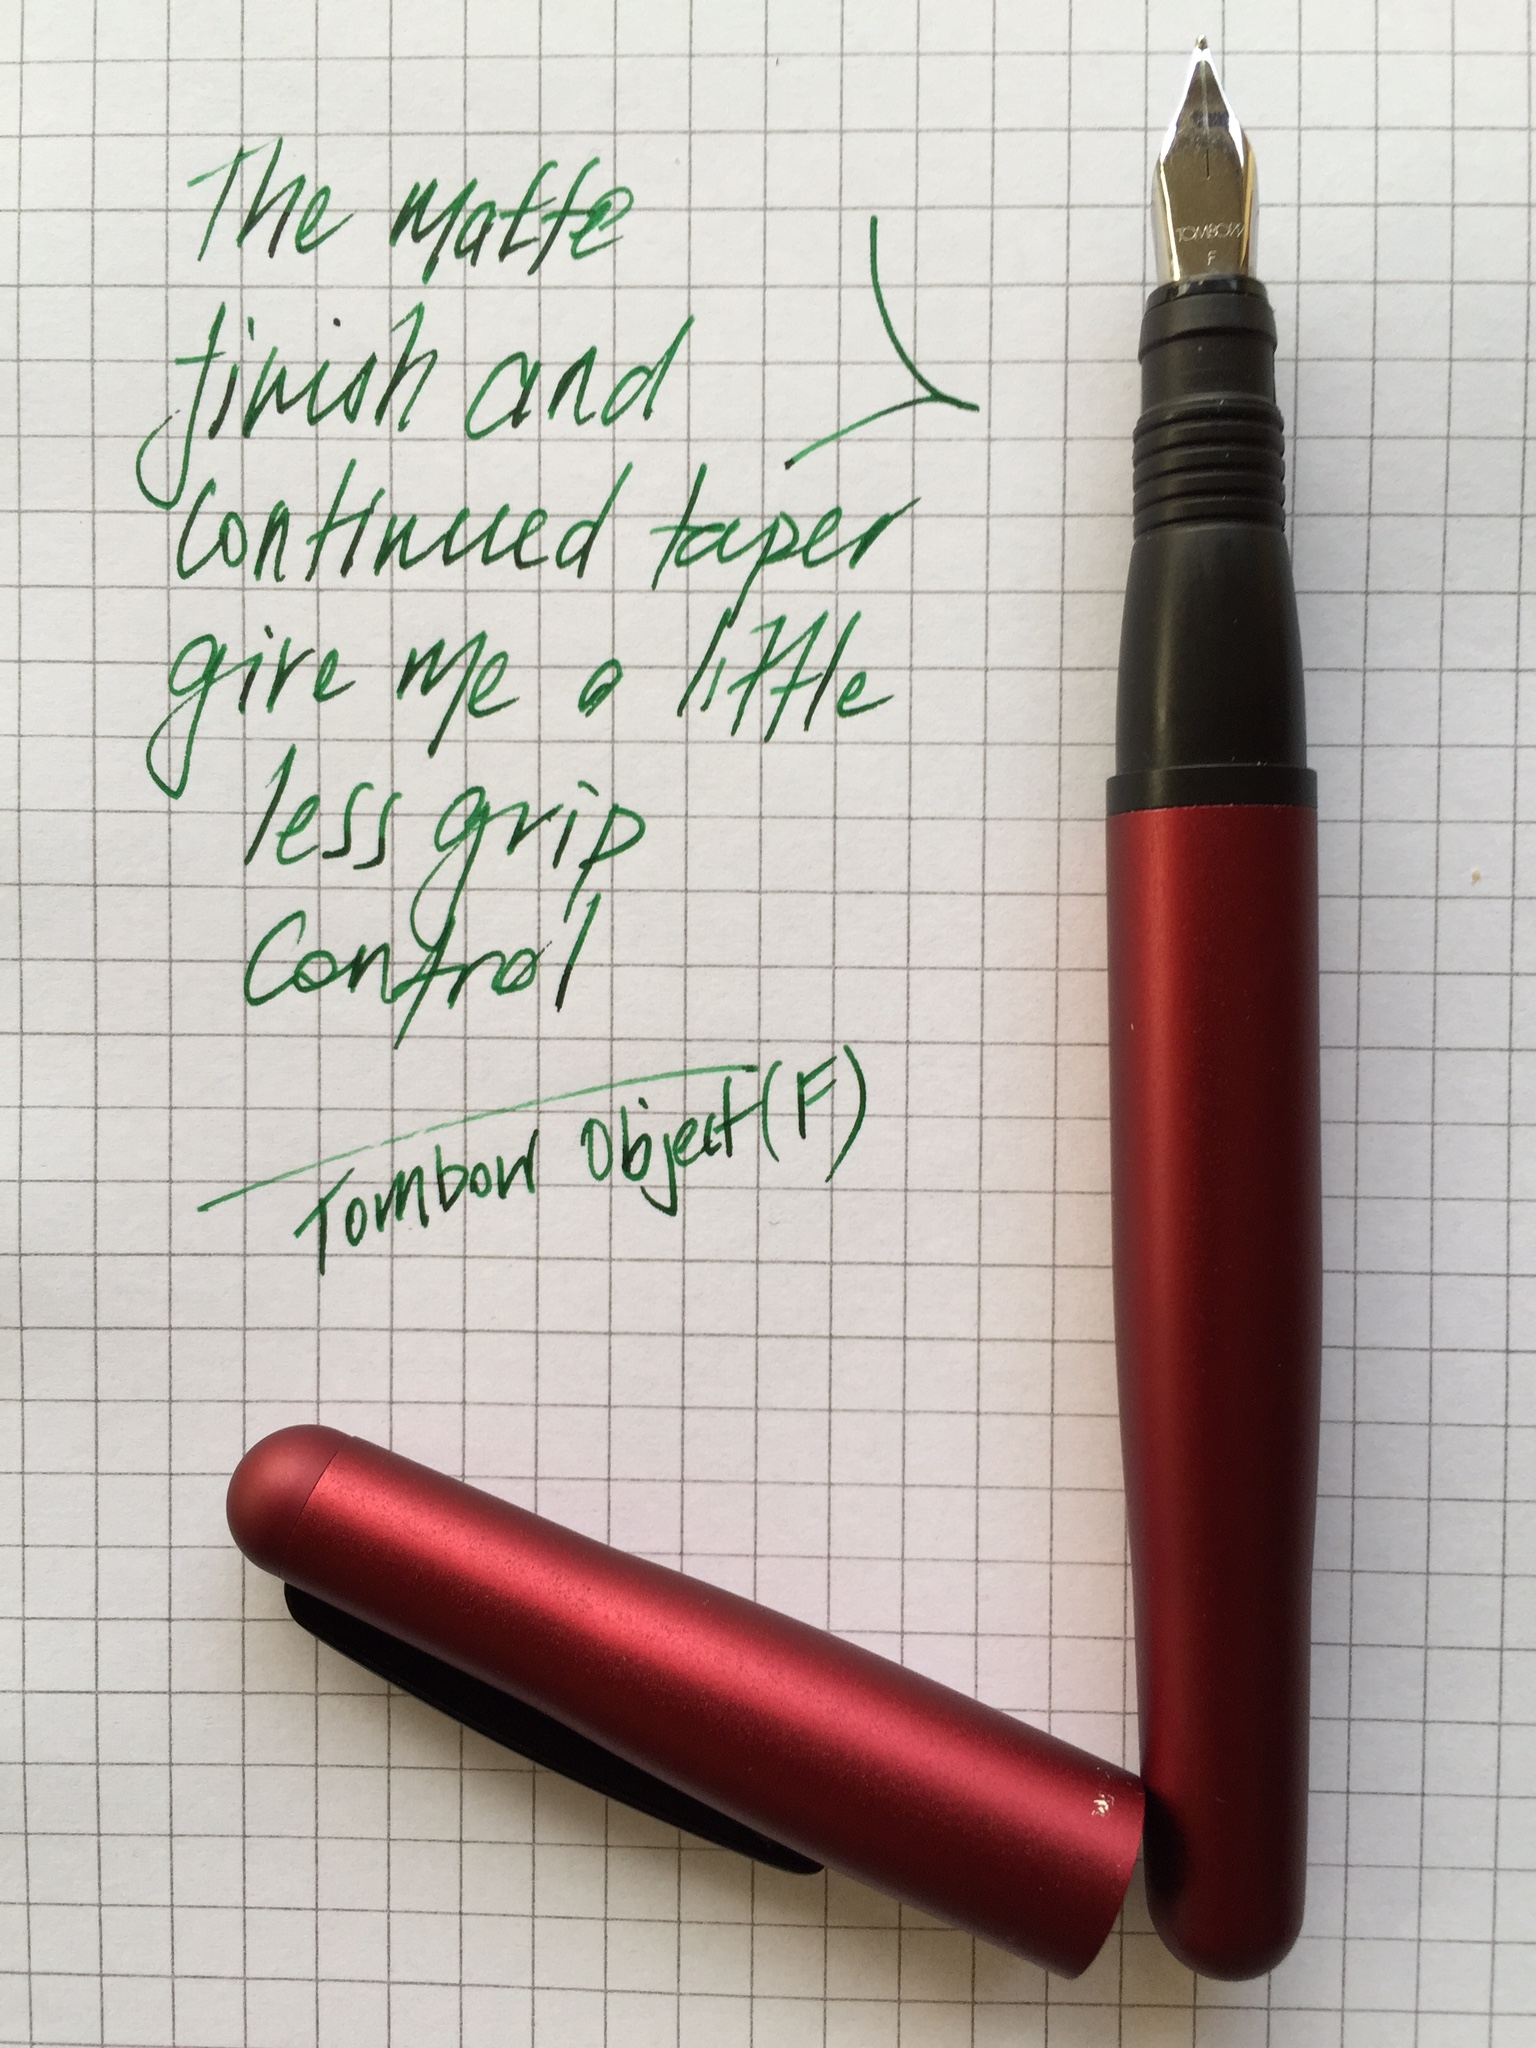 The matte
finish and
continued taper
give me a little
less grip
control
Tombow Object (F)
TOMBOW
F